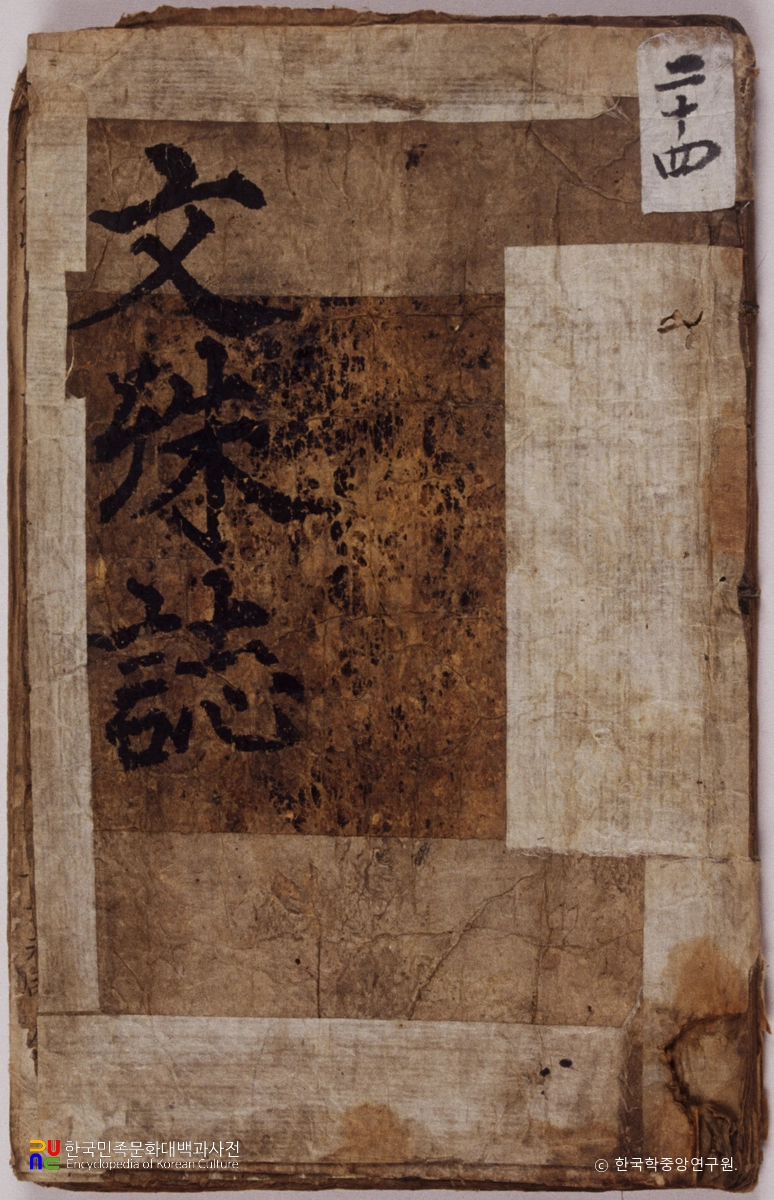 二十四
文殊誌
한국민족문화대백과사전
Encyclopedia of Korean Culture
© 한국학중앙연구원.